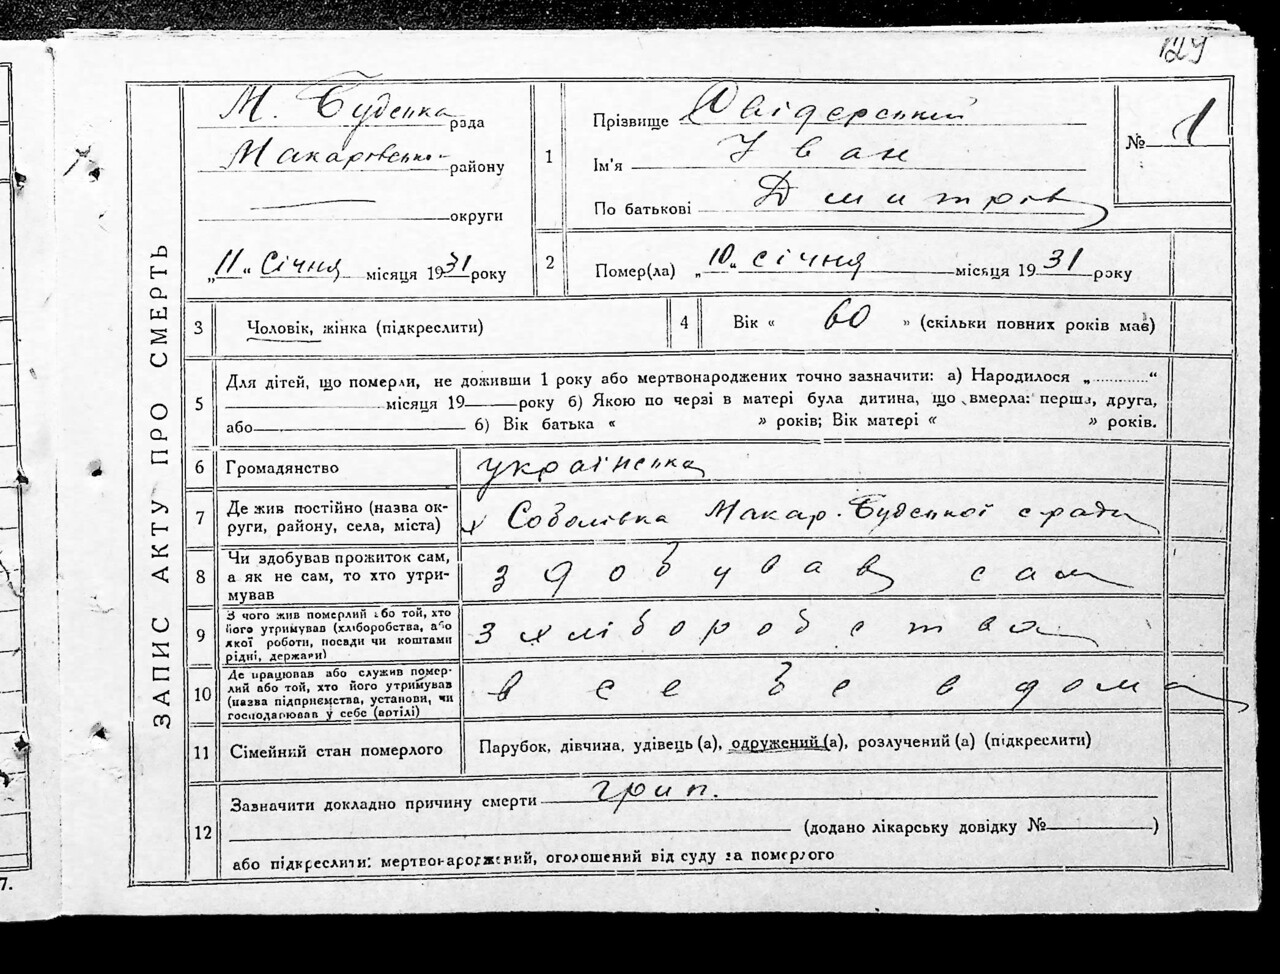 129
ЗАПИС АКТУ ПРО СМЕРТЬ
М. Буденка рада
Макарівсько- району
округи
„11“ Січня місяця 1931 року
1
Прізвище Свідерський
Ім'я Іван
По батькові Дмитрів
№ 1
2
Помер(ла) „10“ січня місяця 1931 року
3 Чоловік, жінка (підкреслити)
4 Вік « 60 » (скільки повних років мав)
5
Для дітей, що померли, не доживши 1 року або мертвонароджених точно зазначити: а) Народилося „............“
місяця 19 року б) Якою по черзі в матері була дитина, що вмерла: перша, друга,
або б) Вік батька « » років; Вік матері « » років.
6 Громадянство українська
7
Де жив постійно (назва ок-
руги, району, села, міста)
х Соболівка Макар. Буденкої с ради
8
Чи здобував прожиток сам,
а як не сам, то хто утри-
мував
здобував сам
9
З чого жив померлий або той, хто
його утримував (хліборобства, або
якої роботи, посади чи коштами
рідні, держави)
З хліборобства
10
Де працював або служив помер-
лий або той, хто його утримував
(назва підприємства, установи, чи
господарював у себе (артілі)
в себе в дома
11 Сімейний стан померлого
Парубок, дівчина, удівець (а), одружений (а), розлучений (а) (підкреслити)
12
Зазначити докладно причину смерти грип.
(додано лікарську довідку № )
або підкреслити: мертвонароджений, оголошений від суду за померлого
7.